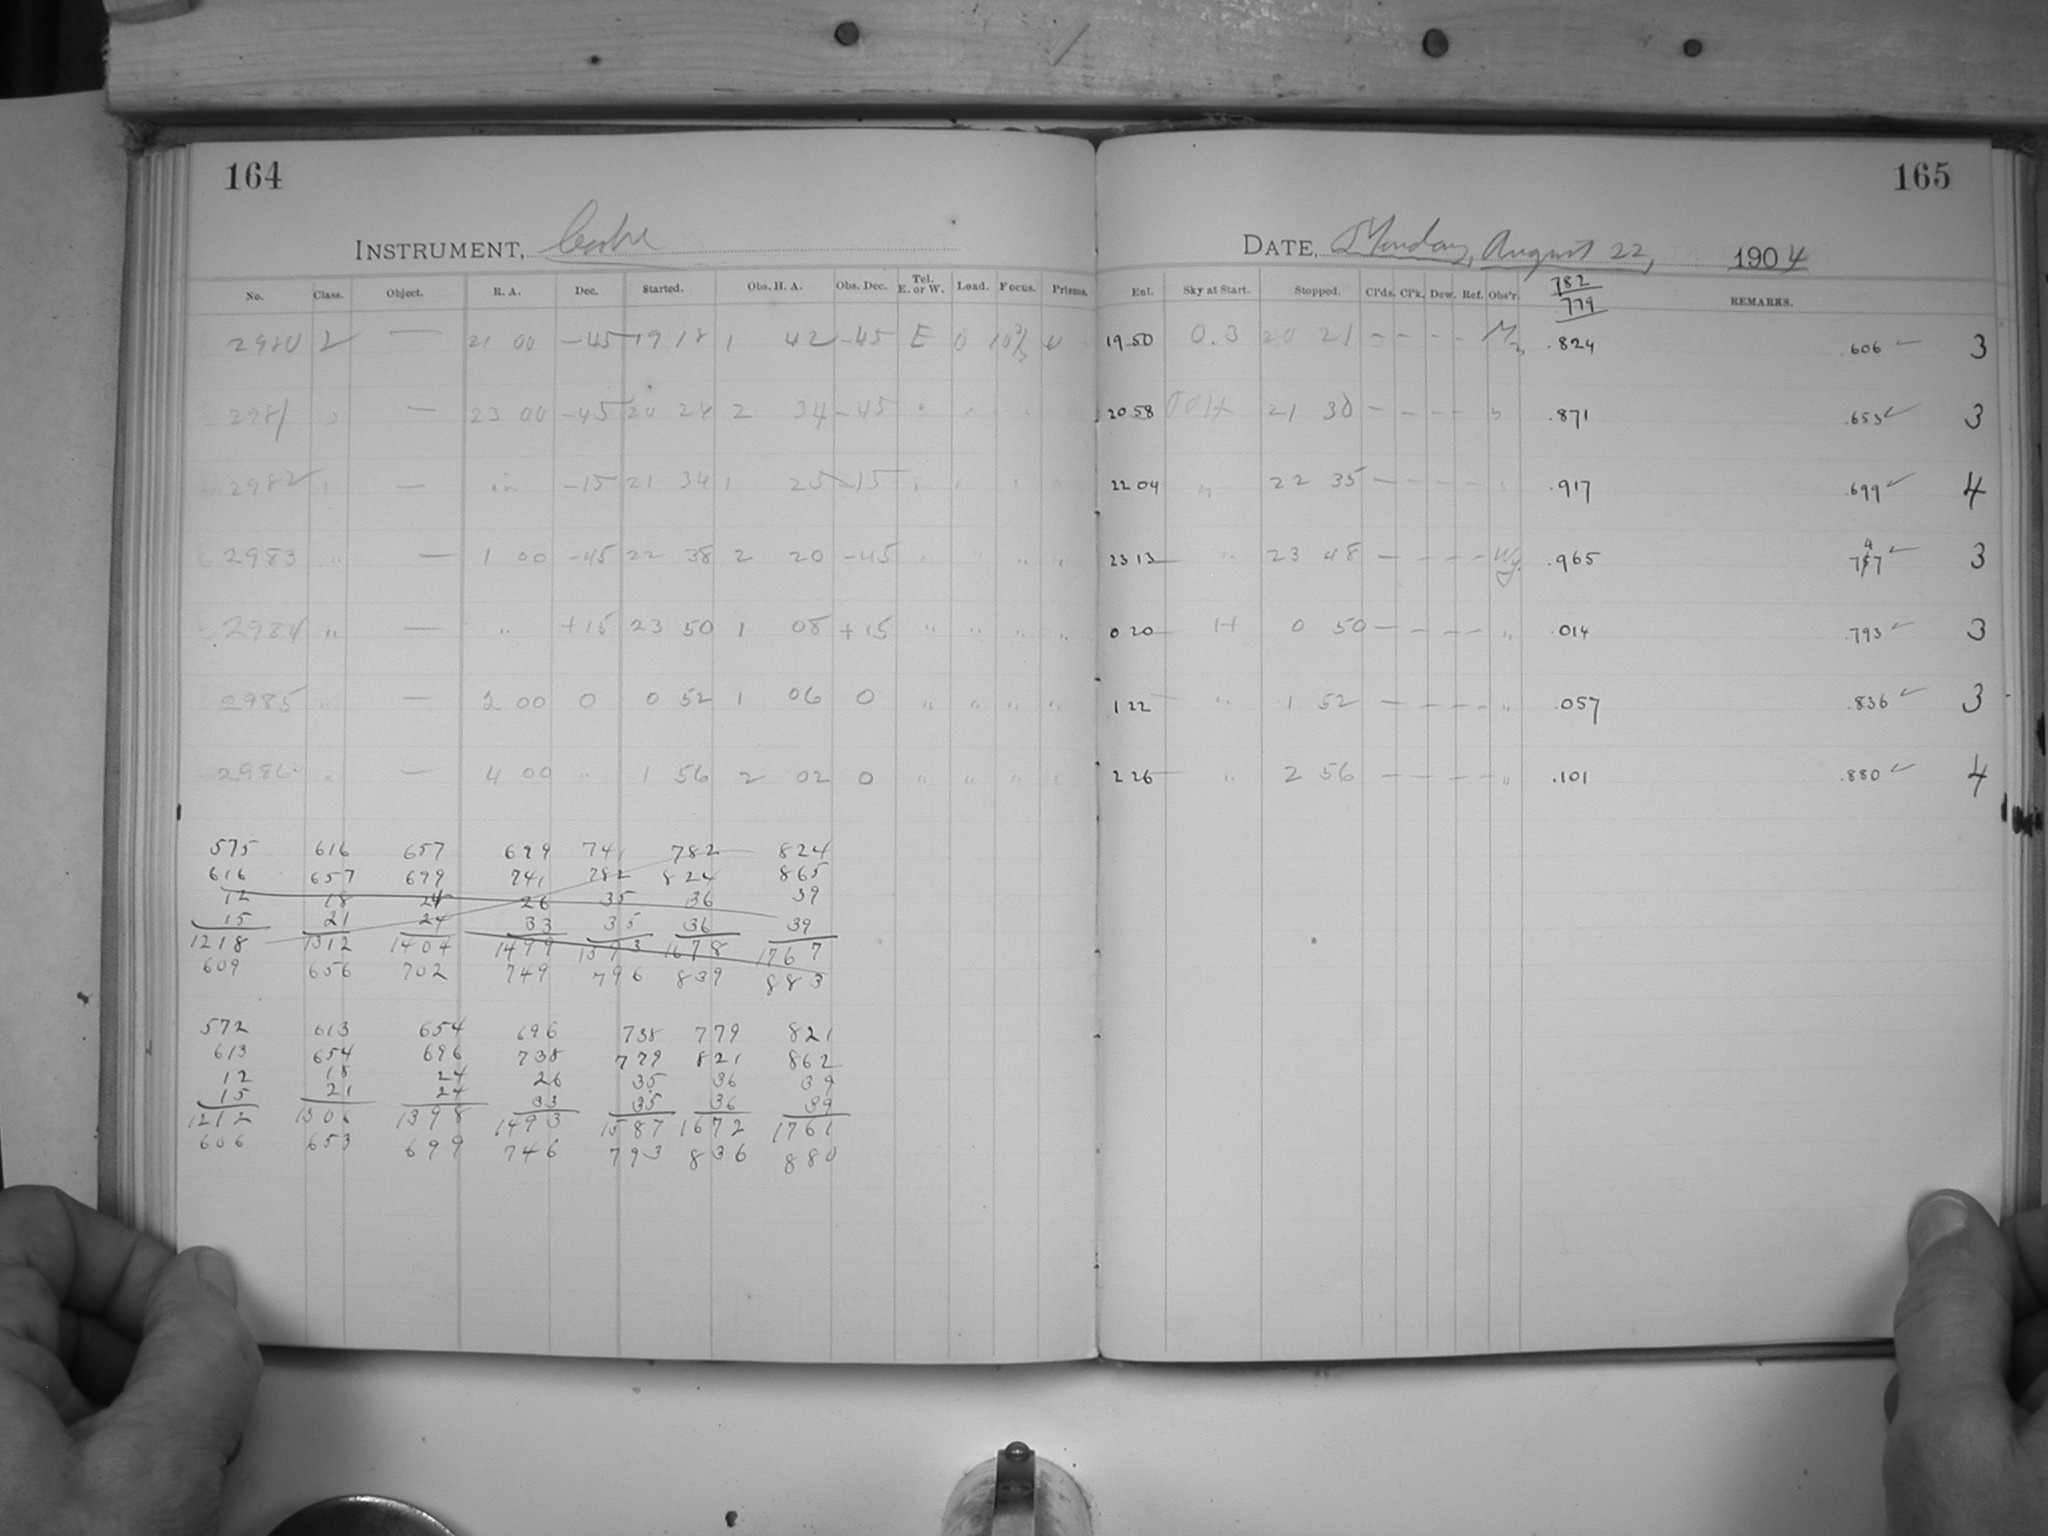 164
INSTRUMENT,
No. Class. Object. R. A. Dec. Started. Obs. H. A. Obs. Dec. Tel. E. or W. Load. Focus. Prisms.
2980 2 — 21 00 -45 19 18 1 42 -45 E 0
2981 " — 23 00 -45 20 28 2 34 -45 " "
2982 " — " -15 21 34 1 25 -15 " " " "
2983 " — 1 00 -45 22 38 2 20 -45 " " " "
2984 " — " +15 23 50 1 08 +15 " " " "
2985 " — 2 00 0 0 52 1 06 0 " " " "
2986 " — 4 00 " 1 56 2 02 0 " " " "
575 616 657 699 741 782 824
616 657 699 741 782 824 865
12 18 24 26 35 36 39
15 21 24 33 35 36 39
1218 1312 1404 1499 1593 1678 1767
609 656 702 749 796 839 883
572 613 654 696 738 779 821
613 654 696 738 779 821 862
12 18 24 26 35 36 39
15 21 24 33 35 36 39
1212 1306 1398 1493 1587 1672 1761
606 653 699 746 793 836 880
165
DATE, Monday, August 22, 1904
782
779
Eul. Sky at Start. Stopped. Cl'ds. Cl'k. Dew. Ref. Obs'r. REMARKS.
19 50 0.3 20 21 – – – – .824 .606 ✓ 3
20 58 21 30 – – – – " .871 .653 ✓ 3
22 04 " 22 35 – – – – " .917 .699 ✓ 4
23 13 " 23 48 – – – – Wy. .965 4 757 ✓ 3
0 20 H 0 50 – – – – " .014 .793 ✓ 3
1 22 " 1 52 – – – – " .057 .836 ✓ 3
2 26 " 2 56 – – – – " .101 .880 ✓ 4